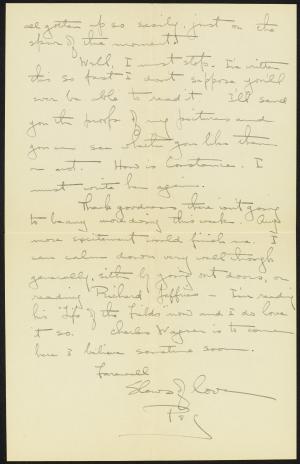 all gotten up so easily, just on the
spur of the moment!
Well, I must stop. I've written
this so fast I don't suppose you'll
ever be able to read it. I'll send
you the proofs of my pictures and
you can see whether you like them
or not. How is Constance. I
must write her again.
Thank goodness there isn't going
to be any more doing this week. Any
more excitement would finish me. I
can calm down very well though
generally, either by going out doors, or
reading Richard Jeffries — I'm reading
his "Life of the Fields" now and I do love
it so. Charles Wagner is to come
here I believe sometime soon.
Farewell
Slews of love